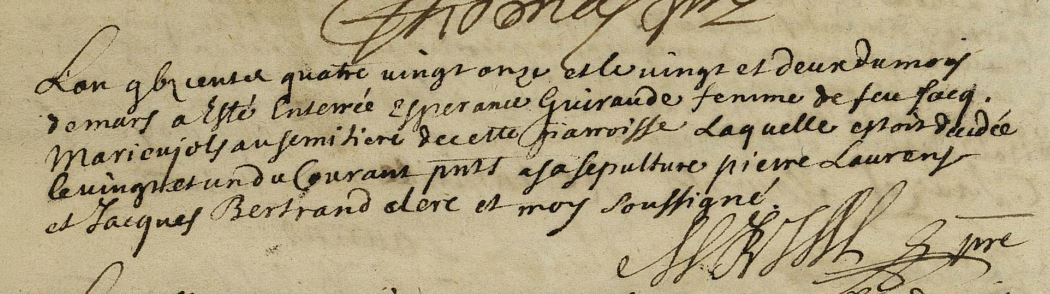 Thomas pre
L'an g bi cents quatre vingt onze et le vingt et deux du mois
de mars a Esté Enterrée Esperance Guiraude femme de feu Jacq.
Marieujols au semitiere de cette parroisse Laquelle estoit decedée
le vingt et un du Courant pnts a sa sepulture pierre Laurens
et Jacques Bertrand clerc et moy soussigné.
pre